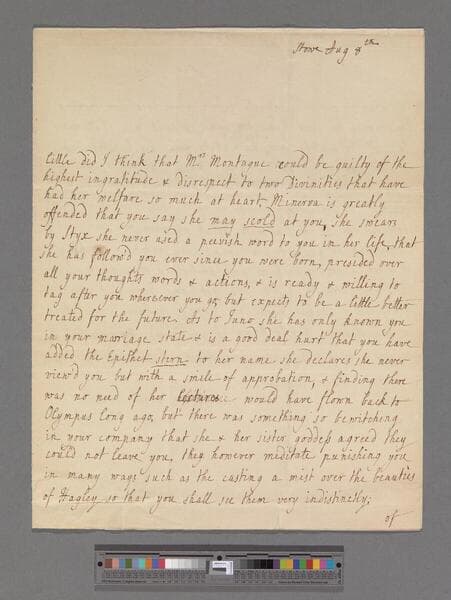 Stowe Aug 8th
Little did I think that Mrs Montague could be guilty of the
highest ingratitude & disrespect to two Divinities that have
had her welfare so much at heart, Minerva is greatly
offended that you say she may scold at you, she swears
by Styx she never used a peevish word to you in her life, that
she has follow'd you ever since you were born, presided over
all your thoughts words & actions, & is ready & willing to
tag after you wheresever you go, but expects to be a little better
treated for the future. As to Juno she has only known you
in your marriage state & is a good deal hurt that you have
added the Epithet stern to her name she declares she never
view'd you but with a smile of approbation, & finding there
was no need of her lectures would have flown back to
Olympus long ago, but there was something so bewitching
in your company that she & her sister goddess agreed they
could not leave you, they however meditate punishing you
in many ways such as the casting a mist over the beauties
of Hagley so that you shall see them very indistinctly;
of